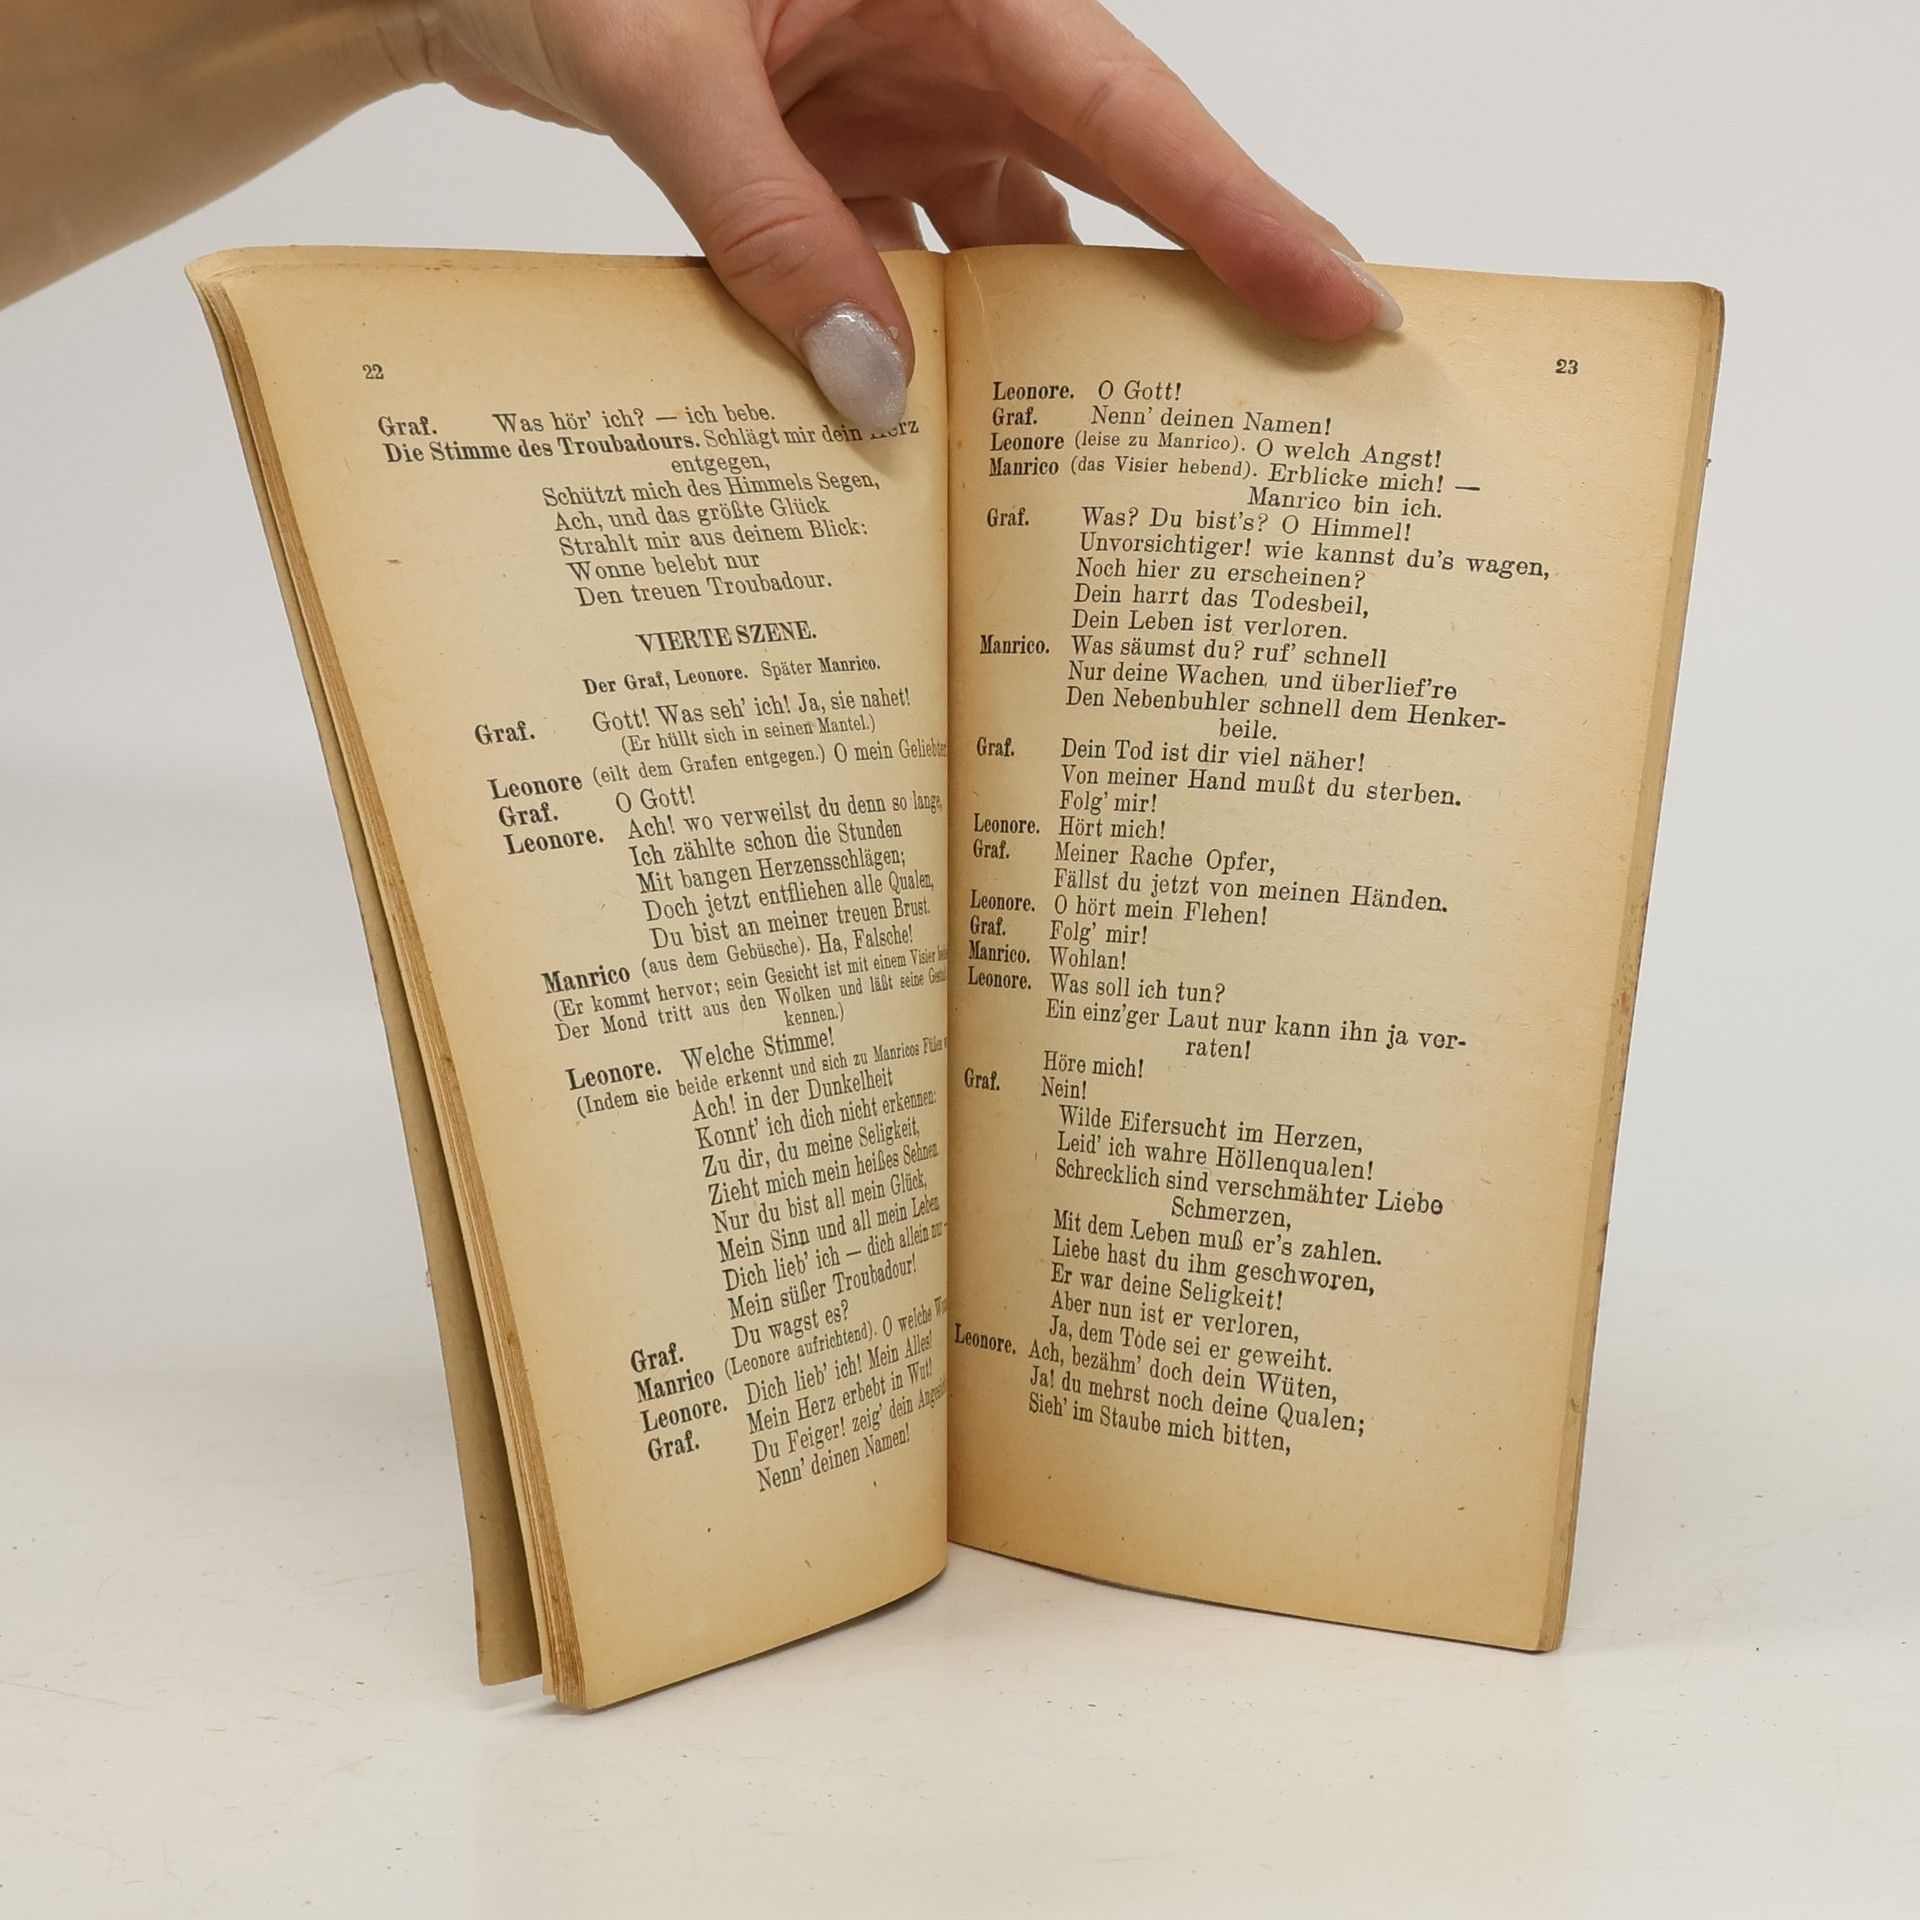 22
Graf. Was hör' ich? — ich bebe.
Die Stimme des Troubadours. Schlägt mir dein Herz
entgegen,
Schützt mich des Himmels Segen,
Ach, und das größte Glück
Strahlt mir aus deinem Blick:
Wonne belebt nur
Den treuen Troubadour.
VIERTE SZENE.
Der Graf, Leonore. Später Manrico.
Graf. Gott! Was seh' ich! Ja, sie nahet!
(Er hüllt sich in seinen Mantel.)
Leonore (eilt dem Grafen entgegen.) O mein
Graf. O Gott!
Leonore. Ach! wo verweilst du denn so lange,
Ich zählte schon die Stunden
Mit bangen Herzensschlägen;
Doch jetzt entfliehen alle Qualen,
Du bist an meiner treuen Brust.
Manrico (aus dem Gebüsche). Ha, Falsche!
(Er kommt hervor; sein Gesicht ist mit einem Visier
Der Mond tritt aus den Wolken und läßt seine
kennen.)
Leonore. Welche Stimme!
(Indem sie beide erkennt und sich zu Manricos
Ach! in der Dunkelheit
Konnt' ich dich nicht erkennen:
Zu dir, du meine Seligkeit,
Zieht mich mein heißes Sehnen
Nur du bist all mein Glück,
Mein Sinn und all mein Leben,
Dich lieb' ich — dich allein nur
Mein süßer Troubadour!
Graf. Du wagst es?
Manrico (Leonore aufrichtend). O welche
Leonore. Dich lieb' ich! Mein Alles!
Graf. Mein Herz erbebt in Wut!
Du Feiger! zeig' dein
Nenn' deinen Namen!
23
Leonore. O Gott!
Graf. Nenn' deinen Namen!
Leonore (leise zu Manrico). O welch Angst!
Manrico (das Visier hebend). Erblicke mich! —
Manrico bin ich.
Graf. Was? Du bist's? O Himmel!
Unvorsichtiger! wie kannst du's wagen,
Noch hier zu erscheinen?
Dein harrt das Todesbeil,
Dein Leben ist verloren.
Manrico. Was säumst du? ruf' schnell
Nur deine Wachen und überlief're
Den Nebenbuhler schnell dem Henker-
beile.
Graf. Dein Tod ist dir viel näher!
Von meiner Hand mußt du sterben.
Folg' mir!
Leonore. Hört mich!
Graf. Meiner Rache Opfer,
Fällst du jetzt von meinen Händen.
Leonore. O hört mein Flehen!
Graf. Folg' mir!
Manrico. Wohlan!
Leonore. Was soll ich tun?
Ein einz'ger Laut nur kann ihn ja ver-
raten!
Höre mich!
Graf. Nein!
Wilde Eifersucht im Herzen,
Leid' ich wahre Höllenqualen!
Schrecklich sind verschmähter Liebe
Schmerzen,
Mit dem Leben muß er's zahlen.
Liebe hast du ihm geschworen,
Er war deine Seligkeit!
Aber nun ist er verloren,
Ja, dem Tode sei er geweiht.
Leonore. Ach, bezähm' doch dein Wüten,
Ja! du mehrst noch deine Qualen;
Sieh' im Staube mich bitten,